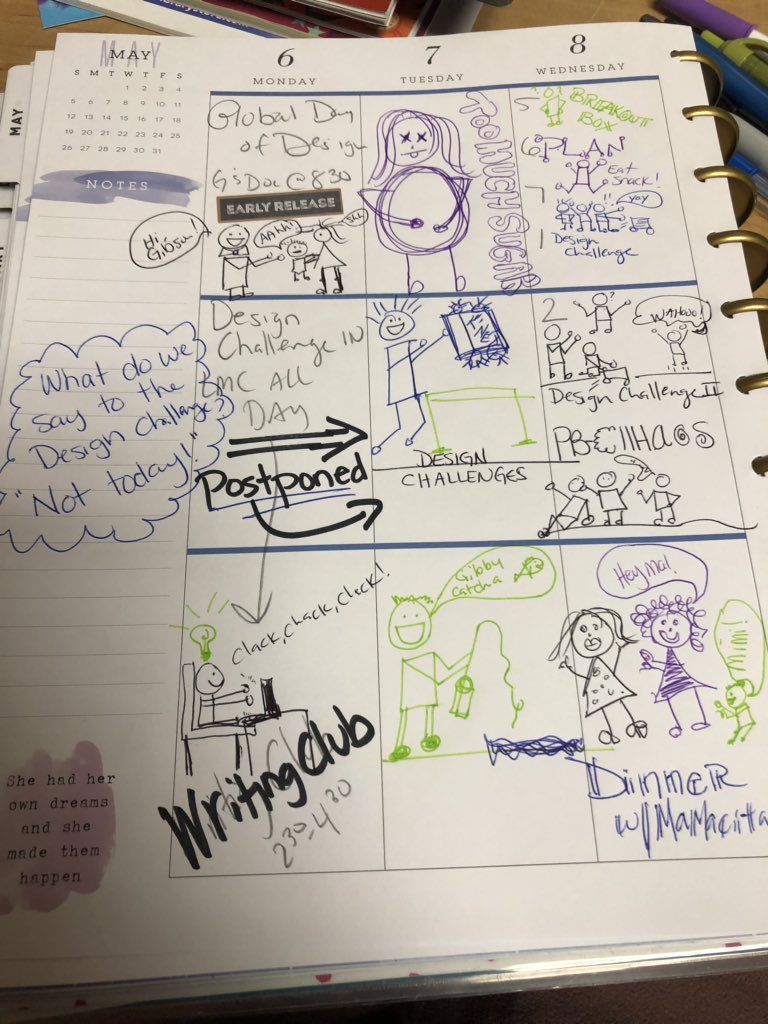 MAY
MAY
S M T W T F S
1 2 3 4
5 6 7 8 9 10 11
12 13 14 15 16 17 18
19 20 21 22 23 24 25
26 27 28 29 30 31
MAY
NOTES
What do we
say to the
Design Challenge?
"Not today!"
She had her
own dreams
and she
made them
happen
6
MONDAY
Global Day
of Design
G's Doc @ 8:30
EARLY RELEASE
Hi Gibson!
AAhh!
Design
Challenge IN
LMC ALL
DAY
Postponed
Clack, Clack, Clack!
Writing Club
2:30-4:30
7
TUESDAY
TOO MUCH SUGAR
DESIGN
CHALLENGES
Gibby
Catch a
8
WEDNESDAY
5
BREAKOUT
BOX
6
PLAN
Eat
Snack!
7
!!
yay
Design
Challenge
2
?
WAHOOO!
Design Challenge II
Hey Ma!
DinnER
w/MaMacita